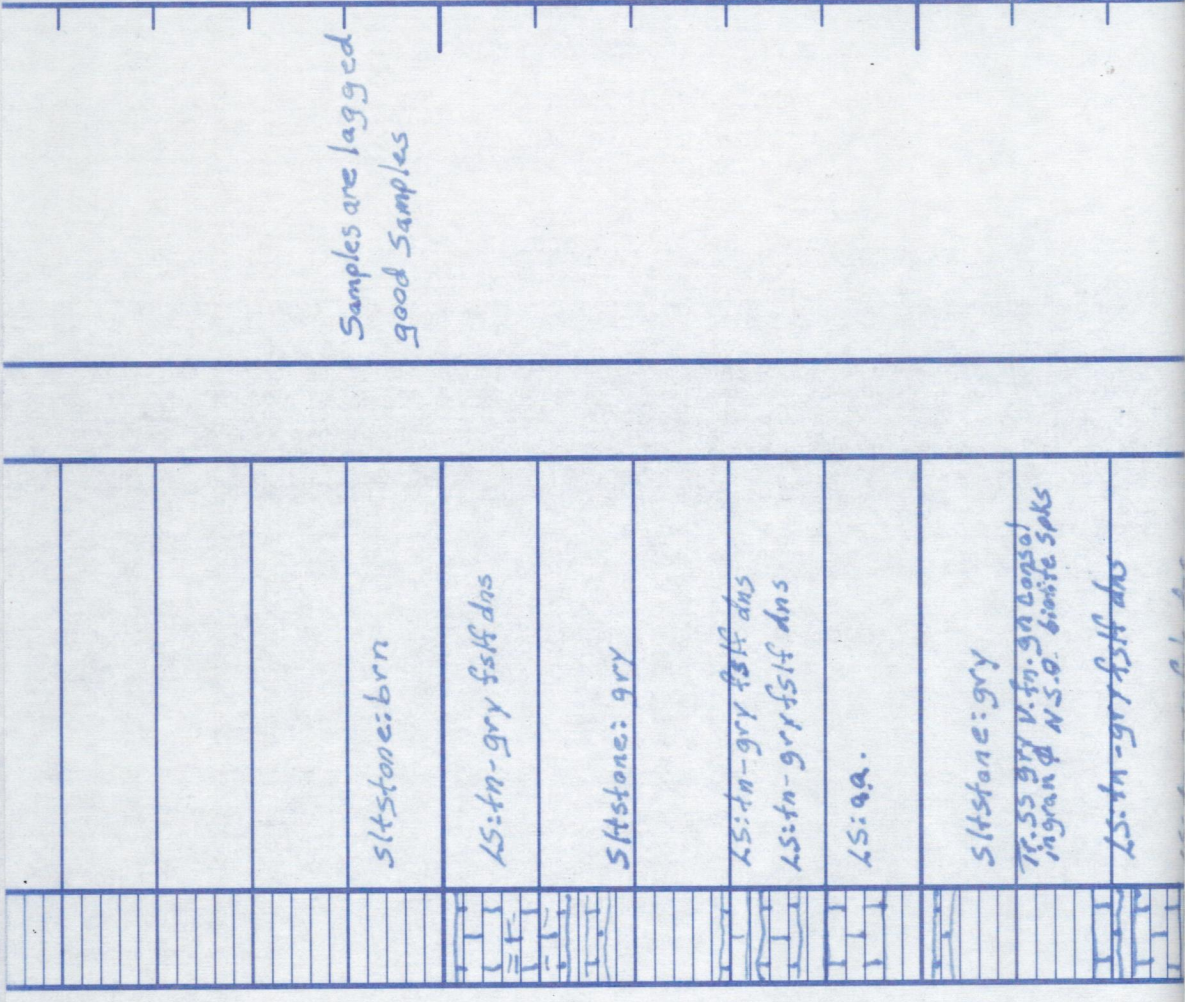 Samples are lagged
good Samples
Sltstone: brn
LS: tn-gry fslf dns
Sltstone: gry
LS: tn-gry fslf dns
LS: tn-gry fslf dns
LS: a.a.
Sltstone: gry
Tr. SS gry V. fn. gn consol
ingran ø N.S.O. biotite spks
LS: tn-gry fslf dns